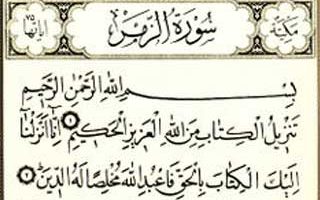 مكية سورة الزمر آياتها ٧٥
بسم الله الرحمن الرحيم
تَنْزِيلُ الْكِتَابِ مِنَ اللهِ الْعَزِيزِ الْحَكِيمِ ١ اِنَّا اَنْزَلْنَا
اِلَيْكَ الْكِتَابَ بِالْحَقِّ فَاعْبُدِ اللهَ مُخْلِصًا لَهُ الدِّينَ